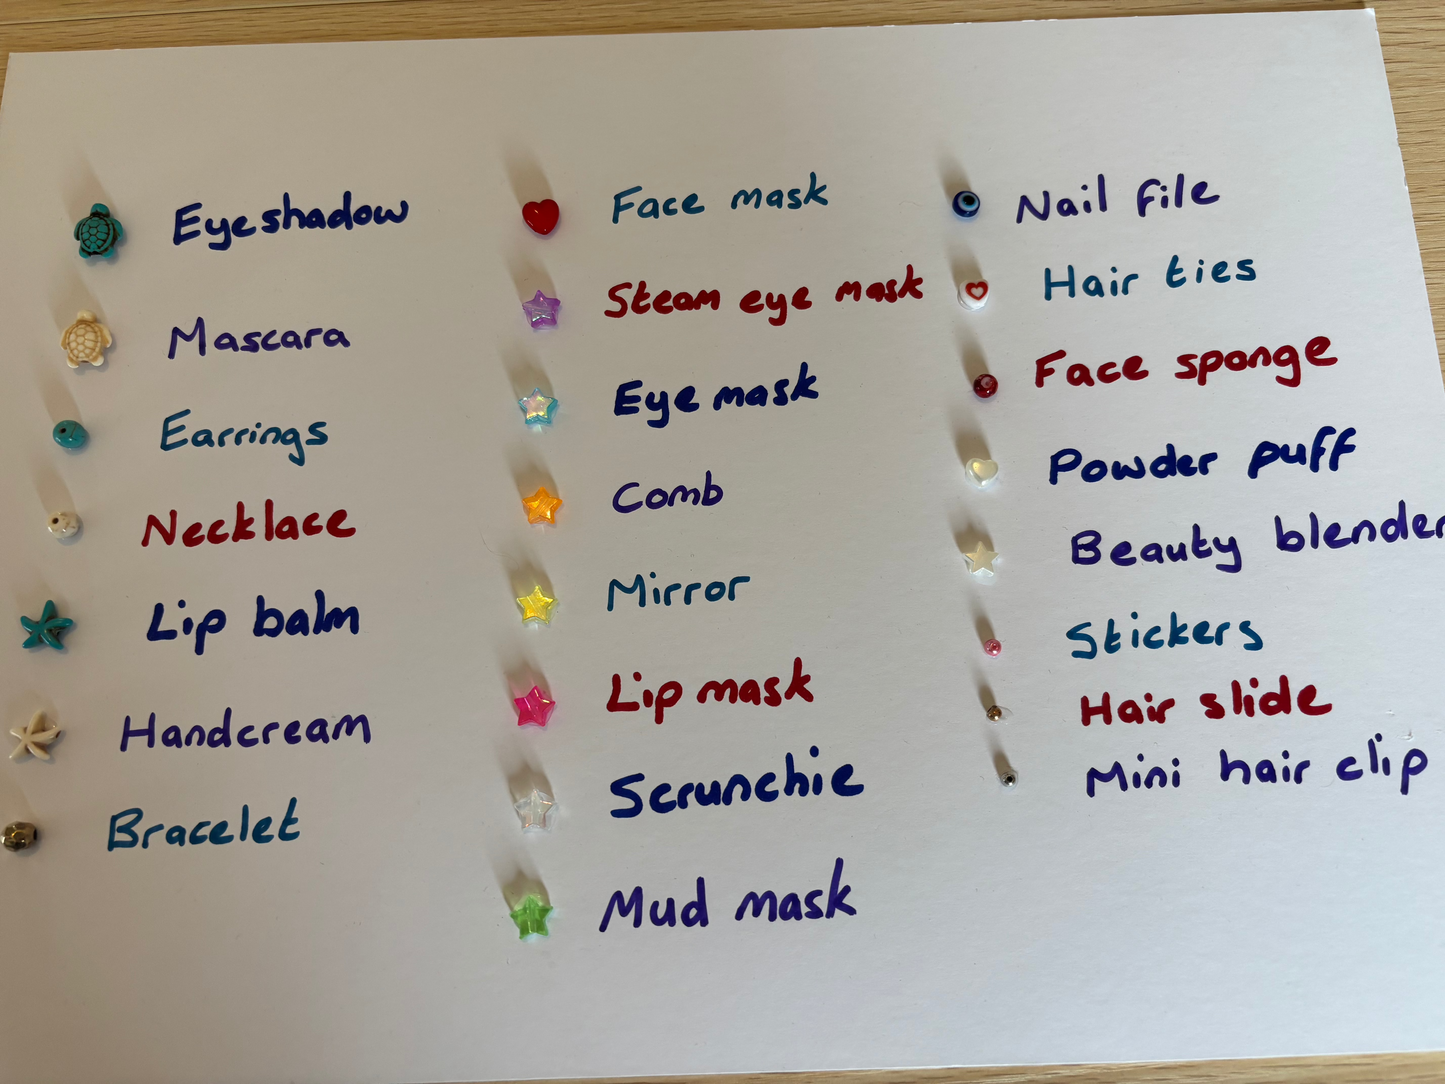 Eyeshadow
Mascara
Earrings
Necklace
Lip balm
Handcream
Bracelet
Face mask
Steam eye mask
Eye mask
Comb
Mirror
Lip mask
Scrunchie
Mud mask
Nail file
Hair ties
Face sponge
Powder puff
Beauty blender
Stickers
Hair slide
Mini hair clip